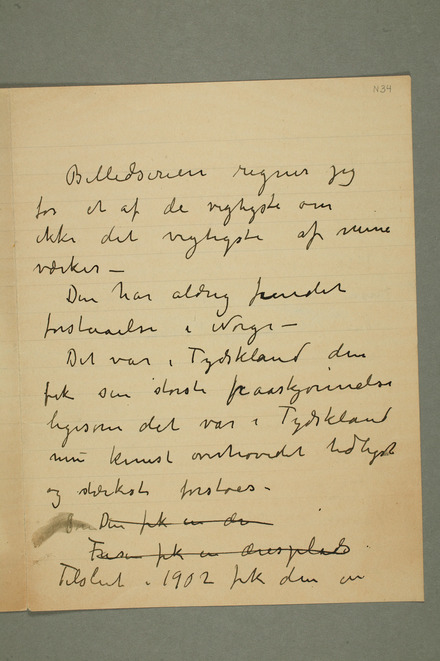 N34
Billedserien regner jeg
for et af de vigtigste om
ikke det vigtigste af mine
værker —
Den har aldrig fundet
forstaaelse i Norge —
Det var i Tydskland den
fik sin største paaskjønnelse
ligesom det var i Tydskland
min kunst overhovedet tidligst
og stærkest forstoes –
Den fik en
Frisen fik en æresplads
Tilslut i 1902 fik den en